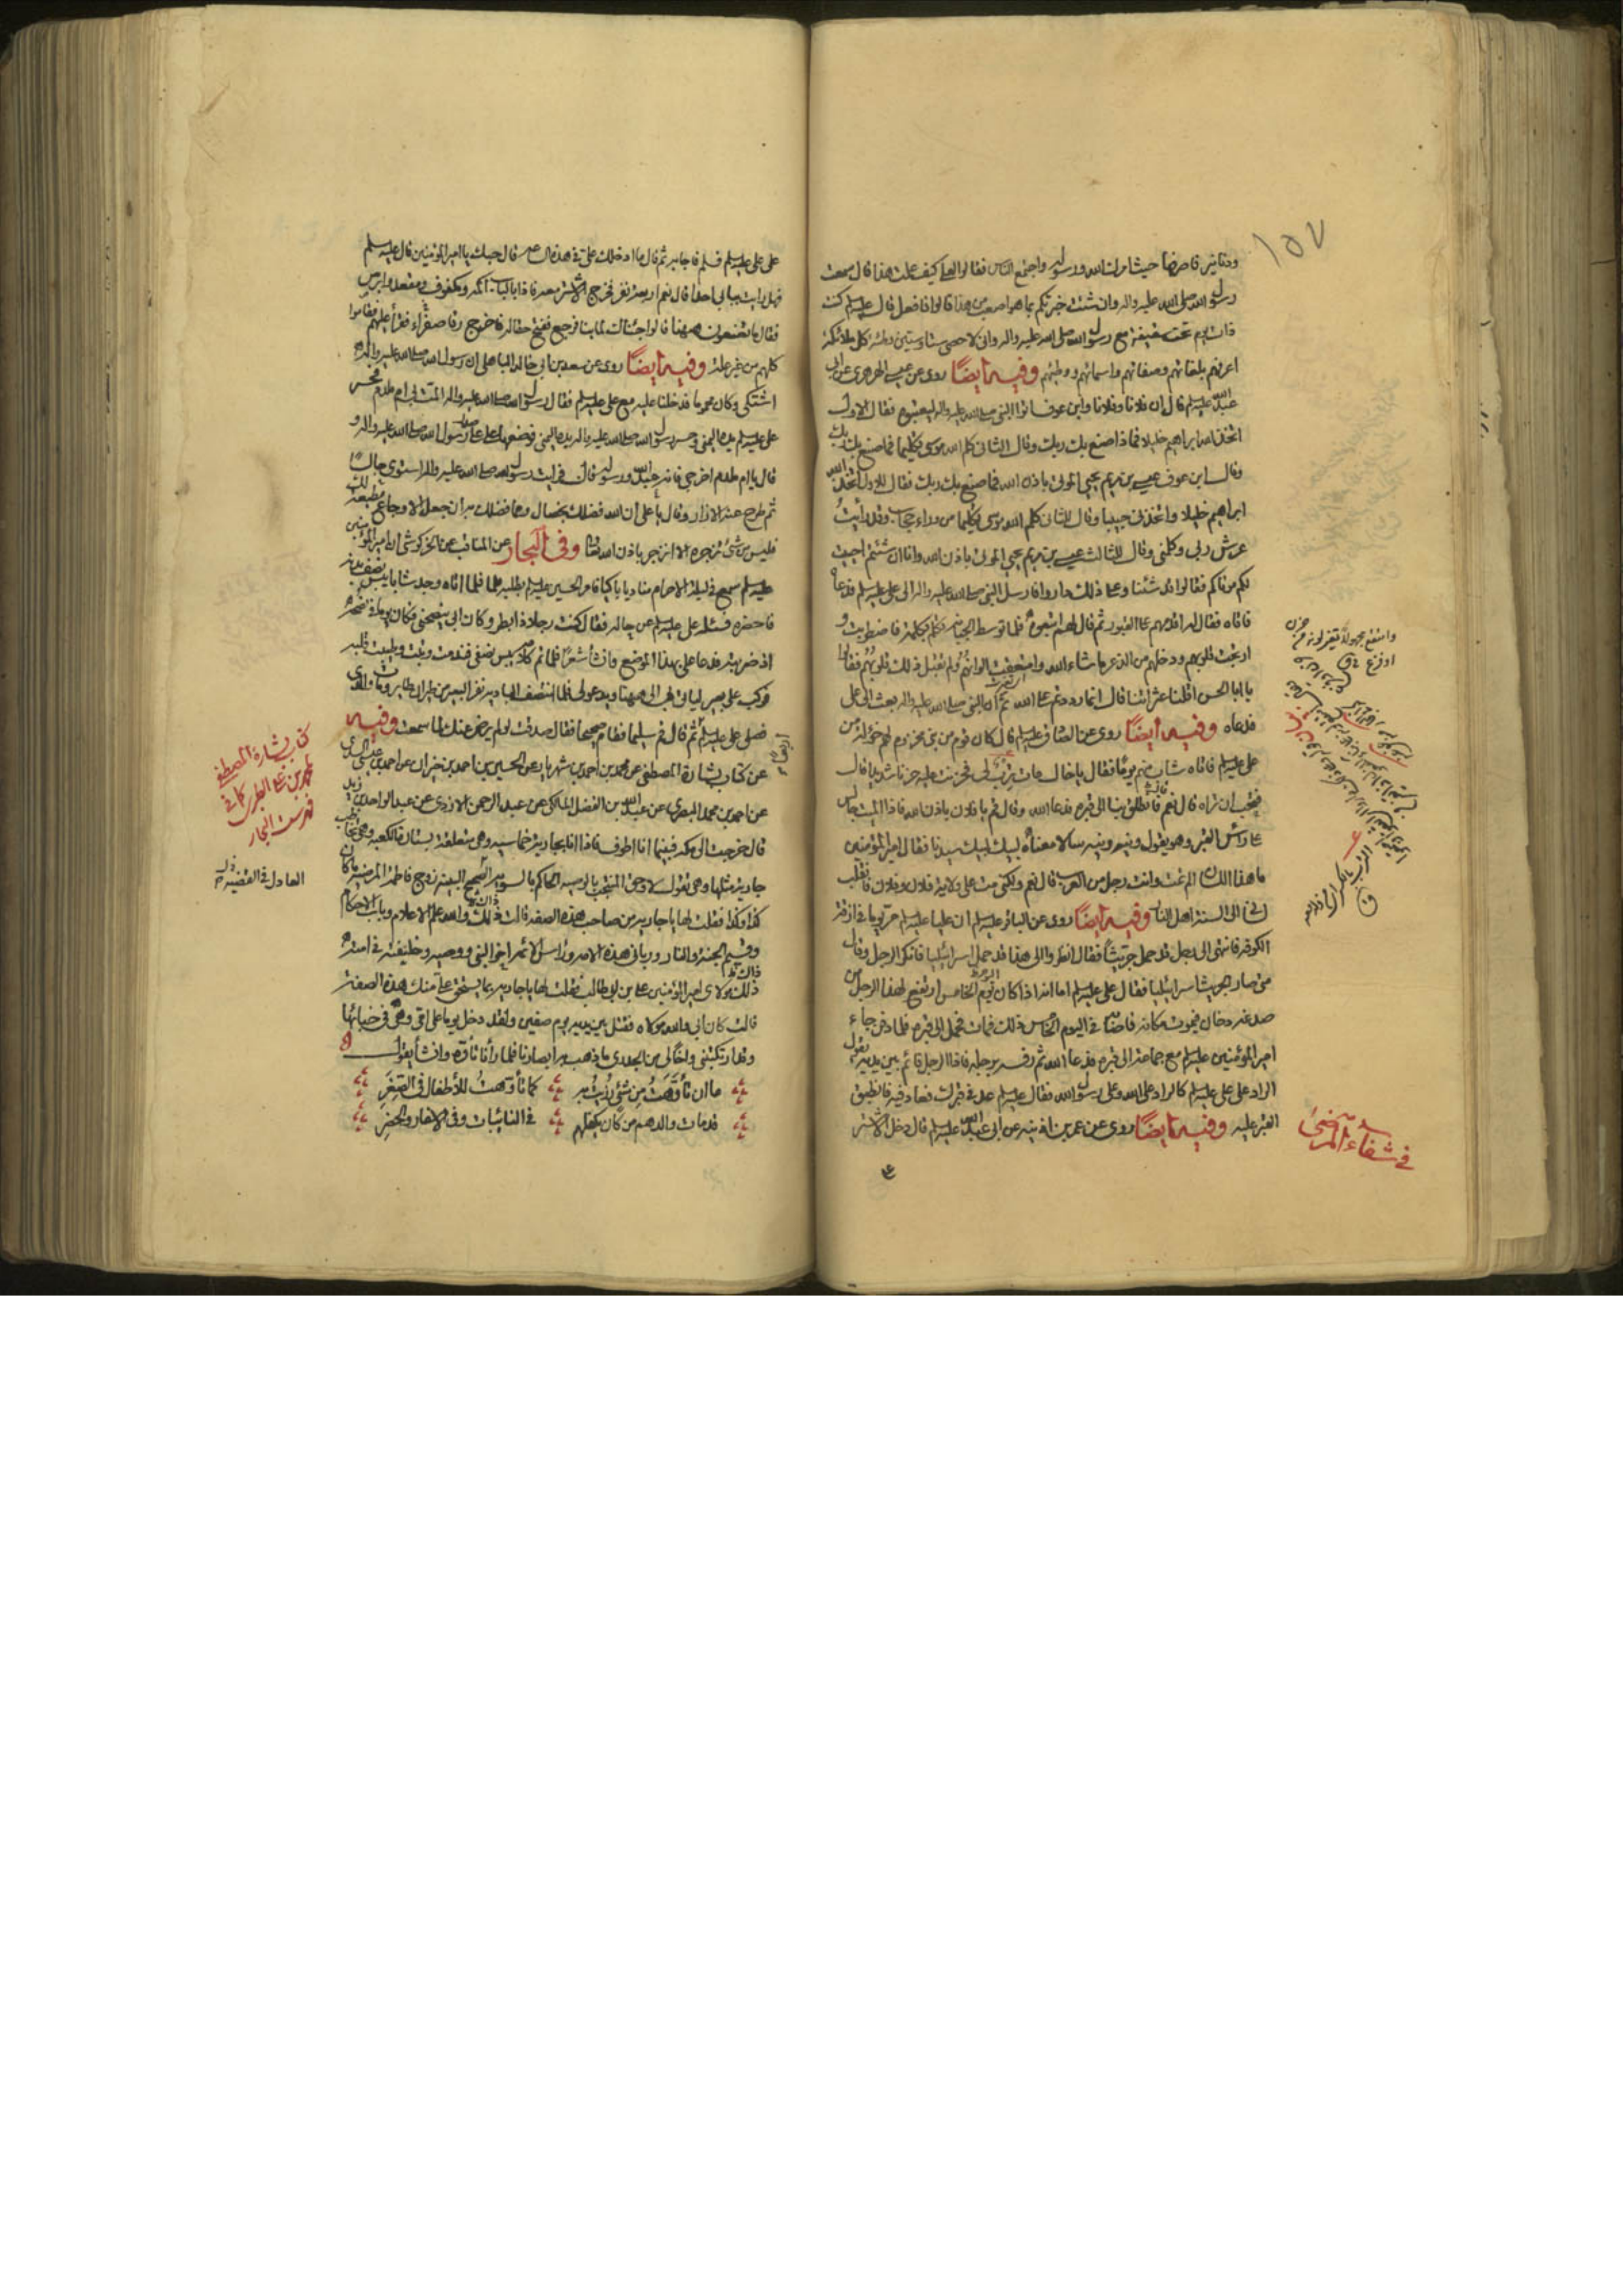 ١٥٧
ودنانير فاصرفها حيث امرك الله ورسوله واجتمع الناس فقالوا لعلي كيف علمت هذا قال سمعت
رسول الله صلى الله عليه واله وان شئت خبرتكم بما هو اصعب من هذا قالوا فافعل قال عليه السلم كنت
ذات يوم تحت سقيفة مع رسول الله صلى الله عليه واله واني لاحصي ستا وستين وطئة كل ملائكة
اعرفهم بلغاتهم وصفاتهم واسمائهم ووطئهم وفيه ايضًا روى عن عيسى الهرهري عن ابي
عبد الله عليه السلم قال ان فلانا وفلانا وابن عوف اتوا النبي صلى الله عليه واله ليعنتوه فقال الاول
اتخذ الله ابراهيم خليلا فماذا صنع بك ربك وقال الثاني كلم الله موسى تكليما فما صنع بك ربك
وقال ابن عوف عيسى بن مريم يحيي الموتى باذن الله فما صنع بك ربك فقال للاول اتخذ الله
ابراهيم خليلا واتخذني حبيبا وقال للثاني كلم الله موسى تكليما من وراء حجاب وقد رأيتُ
عرش ربي وكلمني وقال للثالث عيسى بن مريم يحيي الموتى باذن الله وانا ان شئتم احييت
لكم موتاكم فقالوا قد شئنا وعلى ذلك داروا فارسل النبي صلى الله عليه واله الى علي عليه السلم فدعاه
فاتاه فقال له اقدمهم على القبور ثم قال لهم اتبعوه فلما توسط الجبانة تكلم بكلمة فاضطربت و
ارتجت قلوبهم ودخلهم من الذعر ما شاء الله وامتقعت الوانهم ولم تقبل ذلك قلوبهم فقالوا
يا ابا الحسن اقلنا عثراتنا قال انما رددتم على الله ثم ان النبي صلى الله عليه واله بعث الى علي
فدعاه وفيه ايضًا روى عن الصادق عليه السلم قال كان قوم من بني مخزوم لهم خؤلة من
علي عليه السلم فاتاه شاب منهم يومًا فقال يا خال مات ترب لي فحزنت عليه حزنا شديدا قال
فتحب ان تراه قال نعم فانطلق بنا الى قبره فدعا الله وقال قم يا فلان باذن الله فاذا الميت جالس
على رأس القبر وهو يقول ونيه ونيه سالا معناه لبيك لبيك سيدنا فقال امير المؤمنين
ما هذا اللسان الم تمت وانت رجل من العرب قال نعم ولكني مت على ولاية فلان وفلان فانقلب
لساني الى السنة اهل النار وفيه ايضًا روى عن الباقر عليه السلم ان عليا عليه السلم مر يوما في ازقة
الكوفة فانتهى الى رجل قد حمل جريثاً فقال انظروا الى هذا قد حمل اسرائيليا فانكر الرجل وقال
متى صار الجريث اسرائيليا فقال علي عليه السلم اما انه اذا كان يوم الخامس ارتفع لهذا الرجل من
صدغه دخان فيموت مكانه فاصابه في اليوم الخامس ذلك فمات فحمل الى قبره فلما دفن جاء
امير المؤمنين عليه السلم مع جماعة الى قبره فدعا الله ثم رفسه برجله فاذا الرجل قائم بين يديه يقول
الراد على علي عليه السلم كالراد على الله وعلى رسول الله فقال عليه السلم عد في قبرك فعاد فيه فانطبق
القبر عليه وفيه ايضًا روى عن عمر بن اذينة عن ابي عبد الله عليه السلم قال دخل الاشتر
وامتقع مجهولا تغير لونه من حزن
او فزع ق
في شفاء المرضى
على علي عليه السلم فسلم فاجابه ثم قال ما ادخلك علي في هذه الساعة قال حبك يا امير المؤمنين قال عليه السلم
فهل رايت ببابي احدا قال نعم اربعة نفر فخرج الاشتر معه فاذا بالباب اكمه ومكفوف ومقعد وابرص
فقال ما تصنعون ههنا قالوا جئناك لما بنا فرجع ففتح حقا له فاخرج رقا صفراء فقرأ عليهم فقاموا
كلهم من غير علة وفيه ايضًا روى عن سعد بن ابي خالد الباهلي ان رسول الله صلى الله عليه واله
اشتكى وكان محموما فدخلنا عليه مع علي عليه السلم فقال رسول الله صلى الله عليه واله المت بي ام ملدم فحسر
علي عليه السلم يده اليمنى وحسر رسول الله صلى الله عليه واله يده اليمنى فوضعها علي على صدر رسول الله صلى الله عليه واله و
قال يا ام ملدم اخرجي فانه عبد الله ورسوله قال فرايت رسول الله صلى الله عليه واله استوى جالسًا
ثم طرح عنه الازار وقال يا علي ان الله فضلك بخصال ومما فضلك به ان جعل الاوجاع مطيعة لك
فليس من شئ تزجره الا انزجر باذن الله تعالى وفي البحار عن المناقب عن الخركوشي ان امير المؤمنين
عليه السلم سمع في ليلة الاحرام مناديا باكيا فامر الحسين عليه السلم يطلبه فلما اتاه وجد شابا يبس نصف بدنه
فاحضره فسئله علي عليه السلم عن حاله فقال كنت رجلا ذا بطر وكان ابي ينصحني فكان يوما في نصحه
اذ ضربته فدعا علي بهذا الموضع وانشأ شعرًا فلما تم كلامه يبس نصفي فندمت وتبت وطيبت قلبه
فركب على بعير لياتي بي الى ههنا ويدعو لي فلما انتصف البادية نفر البعير من طيران طاير ومات والدي
فصلى علي عليه السلم ثم قال قم سليما فقام صحيحا فقال صدقت لو لم يرض عنك لما سمعت وفيه
عن كتاب بشارة المصطفى عن محمد بن احمد بن شهريار عن الحسين بن احمد بن خيران عن احمد بن عيسى السدي
عن احمد بن محمد البصري عن عبد الله بن الفضل المالكي عن عبد الرحمن الازدي عن عبد الواحد بن زيد
قال خرجت الى مكة فبينما انا اطوف فاذا انا بجارية خماسية وهي متعلقة بستارة الكعبة وهي تخاطب
جارية مثلها وهي تقول لا وحق المنتجب بالوصية الحاكم بالسوية الصحيح البينة زوج فاطمة المرضية ما كان
كذا وكذا فقلت لها يا جارية من صاحب هذه الصفة قالت ذلك والله علم الاعلام وباب الاحكام
وقسيم الجنة والنار ورباني هذه الامة ورأس الائمة اخو النبي ووصيه وخليفته في امته
ذلك مولاي امير المؤمنين علي بن ابي طالب فقلت لها يا جارية بما يستحق علي منك هذه الصفة
قالت كان ابي والله مولاه فقتل بين يديه يوم صفين ولقد دخل يوما على امي وهي في خبائها
وقد ارتكبتني واخا لي من الجدري ما ذهب به ابصارنا فلما رأنا تأوه وانشأ يقول
ما ان تأوّهت من شئ رزيت به كما تأوهتُ للأطفال في الصغَرِ
قد مات والدهم من كان يكفلهم في النائبات وفي الاسفار والحضرِ
كتاب بشارة المصطفى
لمحمد بن علي الطبري كما في
فهرست البحار
العادل في القضية